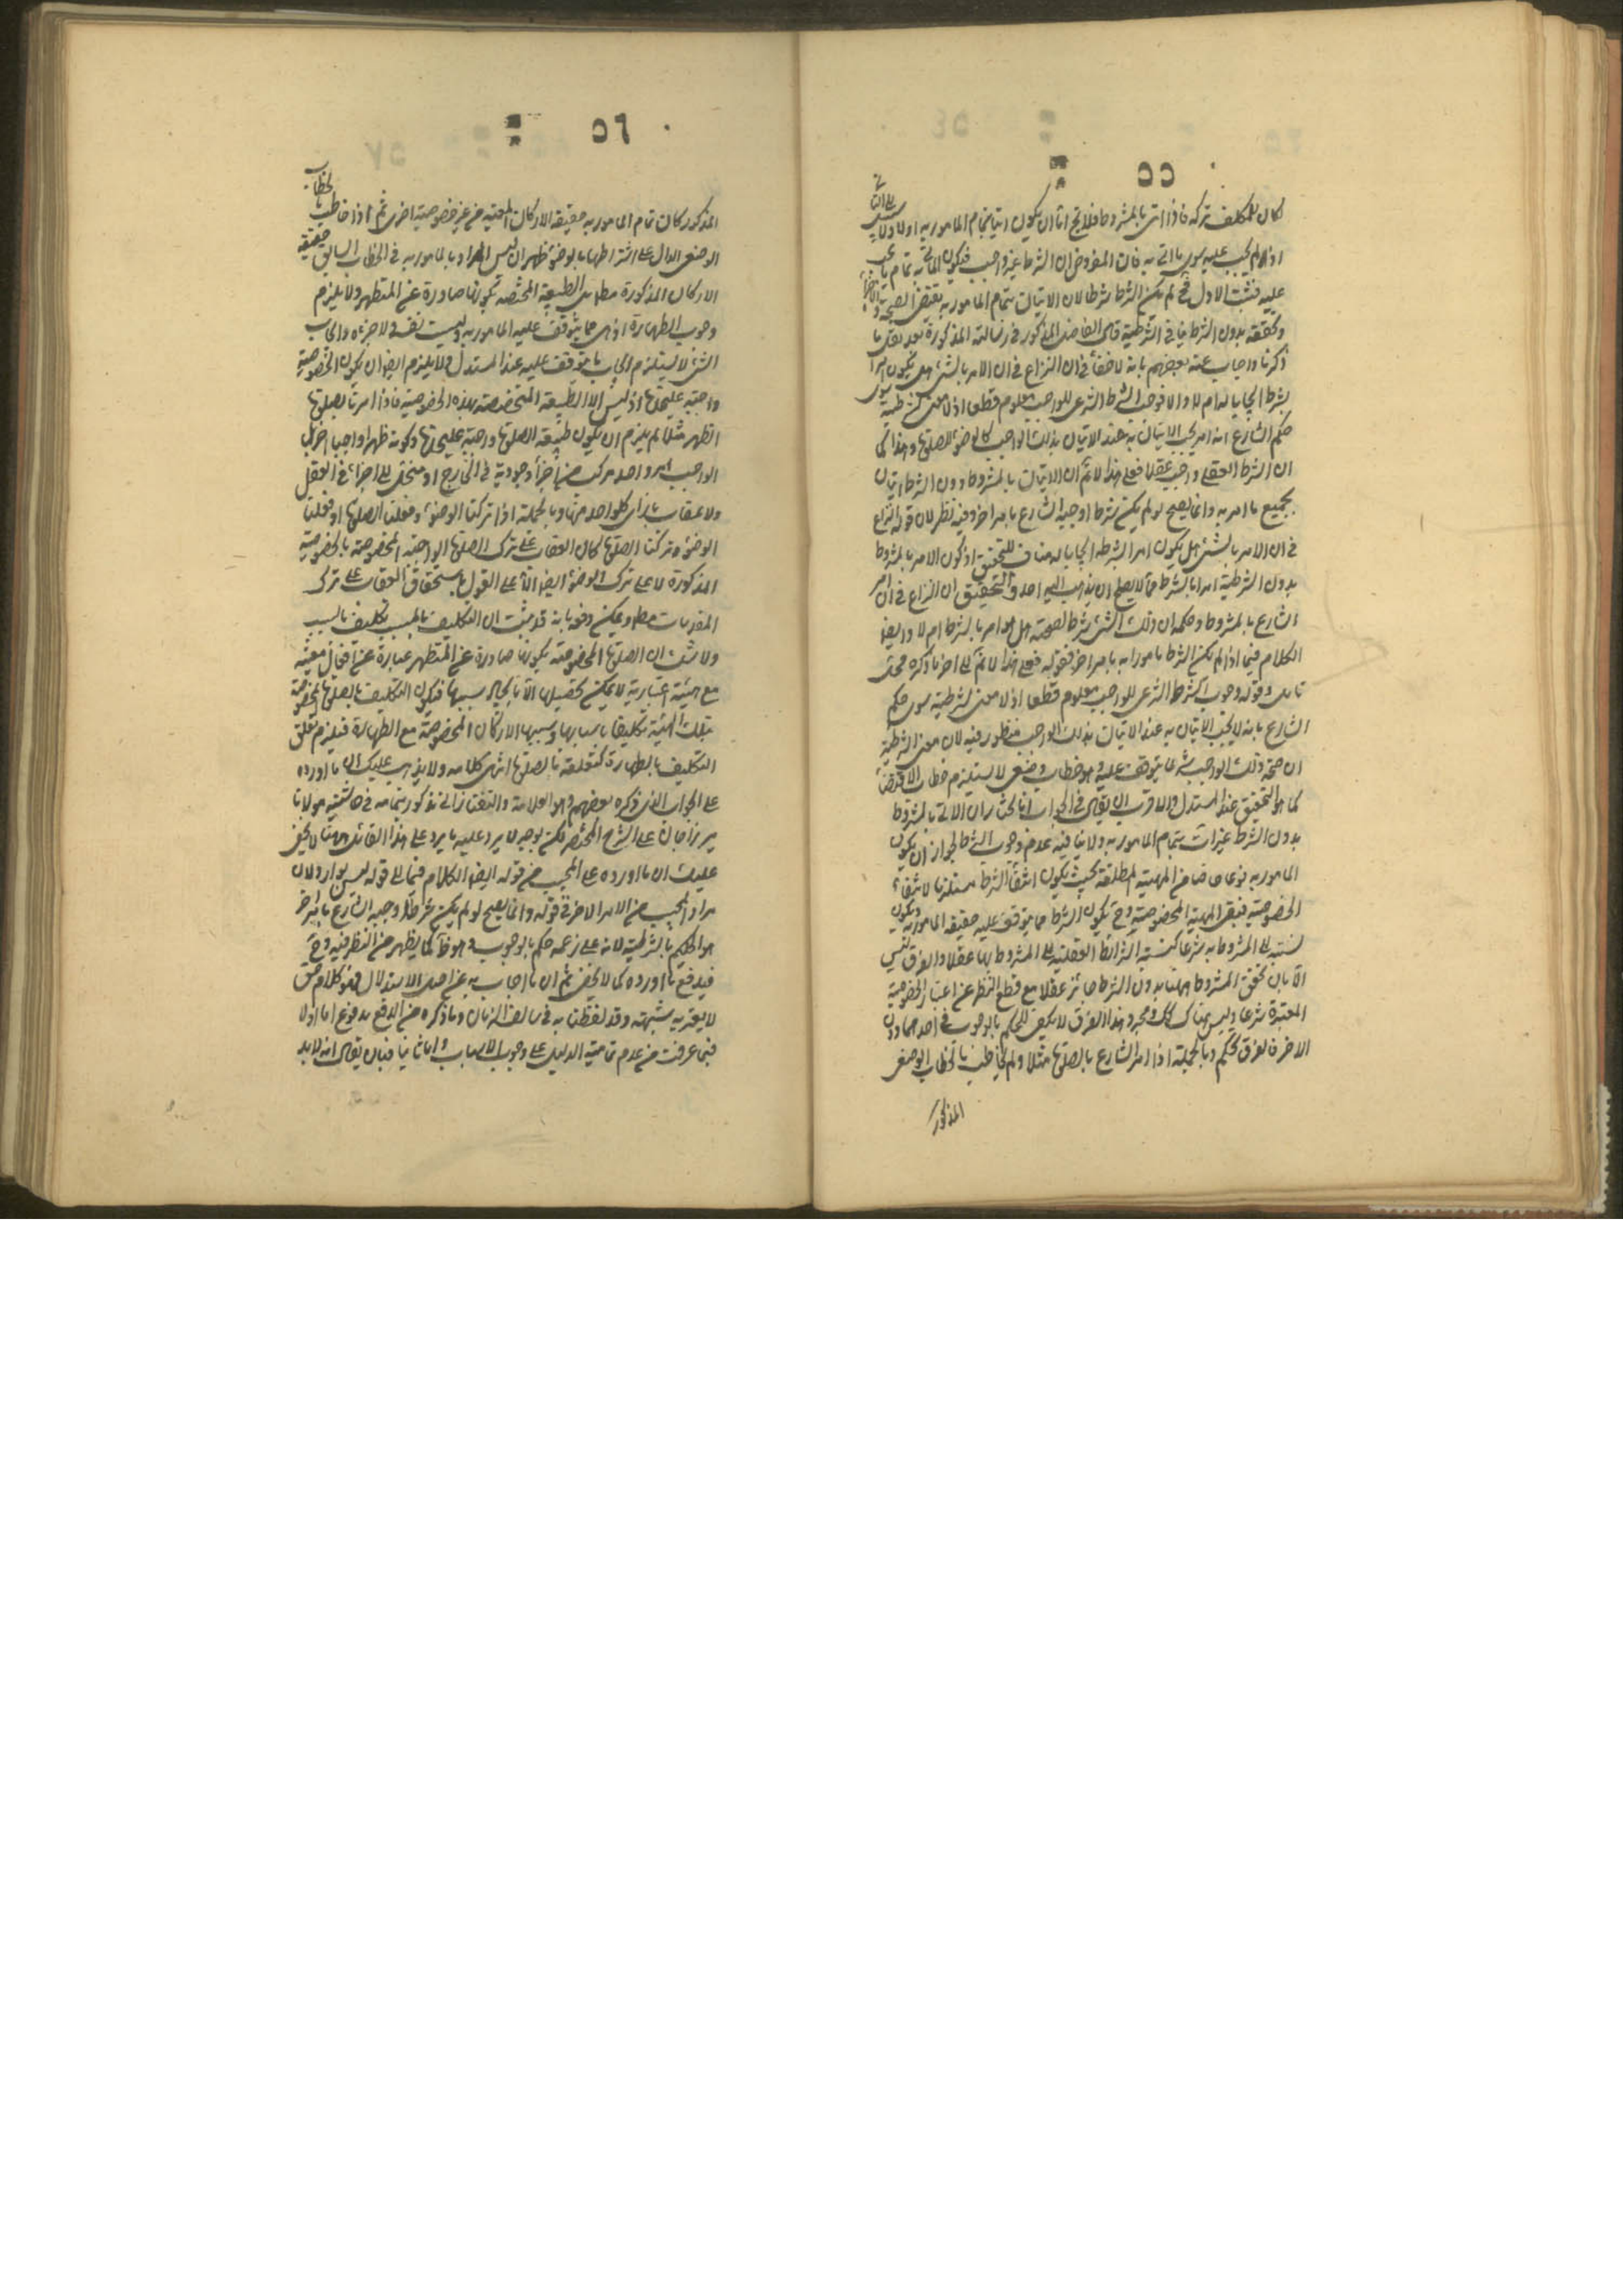 ٥٥
لكان للمكلف تركه فاذا اتى بالمشروط فلا يخ اما ان يكون اتيا بتمام المامور به اولا ولا سبيل الى الثاني
اذ لم يجب عليه سوى ما اتى به فان المفروض ان الشرط غير واجب فيكون الاتى به تمام ما يجب
عليه فثبت الاول فح لم يكن الشرط شرطا لان الاتيان بتمام المامور به يقتضى الصحة والاجزاء
وتحققه بدون الشرط ينافى الشرطية قال الفاضل المذكور فى رسالته المذكورة بعد نقل ما
ذكرنا واجاب عنه بعضهم بانه لا خفأ فى ان النزاع فى ان الامر بالشئ هل يكون امرا
بشرطه ايجابا له ام لا والا فوجوب الشرط الشرعى للواجب معلوم قطعا اذ لا معنى لشرطيته سوى
حكم الشارع انه امر يجب الاتيان به عند الاتيان بذلك الواجب كالوضوء للصلوة وهذا كما
ان الشرط العقلى واجب عقلا فعلى هذا لا نم ان الاتيان بالمشروط دون الشرط اتيان
بجميع ما امر به وانما يصح لو لم يكن شرطا اوجبه الشارع بامر اخر وفيه نظر لان قوله النزاع
فى ان الامر بالشئ هل يكون امرا بشرطه ايجابا له مناف للتحقيق اذ كون الامر بالمشروط
بدون الشرطية امرا بالشرط مما لا يصلح ان يذهب اليه احد والتحقيق ان النزاع فى ان امر
الشارع بالمشروط وحكمه ان ذلك الشئ شرط لصحته هل هو امر بالشرط ام لا وايضا
الكلام فيما اذا لم يكن الشرط مامورا به بامر اخر فقوله فعلى هذا لا نم الى اخر ما ذكره محل
تامل وقوله وجوب الشرط الشرعى للواجب معلوم قطعا اذ لا معنى لشرطيته سوى حكم
الشارع بانه لا يجب الاتيان به عند الاتيان بذلك الواجب منظور فيه لان معنى الشرطية
ان صحة ذلك الواجب شرعا يتوقف عليه وهو خطاب وضعى لا يستلزم خطاب الاقتضاء
كما هو التحقيق عند المستدل والاقرب ان يقال فى الجواب انا نختار ان الاتى بالمشروط
بدون الشرط غير ات بتمام المامور به ولا ينافيه عدم وجوب الشرط لجواز ان يكون
المامور به نوعا خاصا من المهية المطلقة بحيث يكون انتفأ الشرط مستلزما لانتفاء
الخصوصية فينتفى المهية المخصوصة وح يكون الشرط مما يتوقف عليه حقيقة المامور به ويكون
نسبته الى المشروط به شرعا كنسبة الشرائط العقلية الى المشروط بها عقلا والفرق ليس
الا بان تحقق المشروط ههنا بدون الشرط جائز عقلا مع قطع النظر عن اعتبار الخصوصية
المعتبرة شرعا وليس هناك كك ومجرد هذا الفرق لا يكفى للحكم بالوجوب فى احدهما دون
الاخر فالفرق تحكم وبالجملة اذا امر الشارع بالصلوة مثلا ولم يخاطب بالخطاب الوضعى
المذكور
٥٦
المذكور كان تمام المامور به حقيقة الاركان المعينة من غير خصوصية اخرى ثم اذا خاطب بالخطاب
الوضعى الدال على اشتراطها بالوضوء ظهر ان ليس المراد بالمامور به فى الخطاب السابق حقيقة
الاركان المذكورة مطلقا بل الطبيعة المختصة بكونها صادرة عن المتطهر ولا يلزم
وجوب الطهارة اذ هى مما يتوقف عليه المامور به وليست نفسه ولا جزءه وايجاب
الشئ لا يستلزم ايجاب ما يتوقف عليه عند المستدل ولا يلزم ايضا ان يكون الخصوصية
واجبة عليحدة اذ ليس الا الطبيعة المتخصصة بهذه الخصوصية فاذا امرنا بصلوة
الظهر مثلا لم يلزم ان يكون طبيعة الصلوة واجبة عليحدة وكونه ظهرا واجبا اخر بل
الواجب امر واحد مركب من اجزأ وجودية فى الخارج او منحل الى اجزاء فى العقل
ولا عقاب بازاء كل واحد منها وبالجملة اذا تركنا الوضوء وفعلنا الصلوة او فعلنا
الوضوء وتركنا الصلوة كان العقاب على ترك الصلوة الواجبة المخصوصة بالخصوصية
المذكورة لا على ترك الوضوء ايضا الا على القول باستحقاق العقاب على ترك
المقدمات مط ويمكن دفعه بانه قد ثبت ان التكليف بالمسبب تكليف بالسبب
ولا شك ان الصلوة المخصوصة بكونها صادرة عن المتطهر عبارة عن افعال معينة
مع هيئة اعتبارية لا يمكن تحصيلها الا بايجاد سببها فيكون التكليف بالصلوة المخصوصة
بتلك الهيئة تكليفا باسبابها وسببها الاركان المخصوصة مع الطهارة فيلزم تعلق
التكليف بالطهارة كتعلقه بالصلوة انتهى كلامه ولا يذهب عليك ان ما اورده
على الجواب الذى ذكره بعضهم وهو العلامة والتفتازانى مذكور بتمامه فى حاشية مولانا
ميرزا جان على الشرح المختصر لكن بوجه لا يرد عليه ما يرد على هذا القائل ههنا لا يخفى
عليك ان ما اورده على المجيب من قوله ايضا الكلام فيما الى قوله ليس بوارد لان
مراد المجيب من الامر الاخر فى قوله وانما يصح لو لم يكن شرطا اوجبه الشارع بامر اخر
هو الحكم بالشرطية لانه على زعمه حكم بالوجوب وهو خطأ كما يظهر من النظر فيه وح
فيدفع ما اورده كما لا يخفى ثم ان ما اجاب به عن اصل الاستدلال فهو كلام حق
لا يعتريه شبهة وقد لفظنا به فى سالف الزمان وما ذكره من الدفع مدفوع اما اولا
فبما عرفت من عدم تمامية الدليل على وجوب الاسباب واما ثانيا فبان يقال انه لا بد